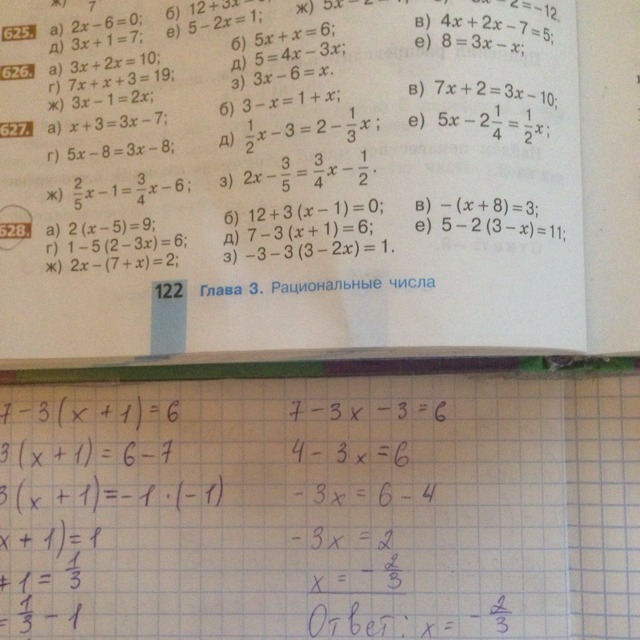 625. а) 2x − 6 = 0; б) 12 + 3x
д) 3x + 1 = 7; е) 5 − 2x = 1; ж) 5x = −12.
626. а) 3x + 2x = 10; б) 5x + x = 6; в) 4x + 2x − 7 = 5;
г) 7x + x + 3 = 19; д) 5 = 4x − 3x; е) 8 = 3x − x;
ж) 3x − 1 = 2x; з) 3x − 6 = x.
627. а) x + 3 = 3x − 7; б) 3 − x = 1 + x; в) 7x + 2 = 3x − 10;
г) 5x − 8 = 3x − 8; д) 1/2 x − 3 = 2 − 1/3 x; е) 5x − 2 1/4 = 1/2 x;
ж) 2/5 x − 1 = 3/4 x − 6; з) 2x − 3/5 = 3/4 x − 1/2.
628. а) 2 (x − 5) = 9; б) 12 + 3 (x − 1) = 0; в) −(x + 8) = 3;
г) 1 − 5 (2 − 3x) = 6; д) 7 − 3 (x + 1) = 6; е) 5 − 2 (3 − x) = 11;
ж) 2x − (7 + x) = 2; з) −3 − 3 (3 − 2x) = 1.
122 Глава 3. Рациональные числа
7 − 3(x + 1) = 6
3(x + 1) = 6 − 7
3(x + 1) = −1 · (−1)
x + 1) = 1
+ 1 = 1/3
= 1/3 − 1
7 − 3x − 3 = 6
4 − 3x = 6
−3x = 6 − 4
−3x = 2
x = −2/3
Ответ: x = −2/3